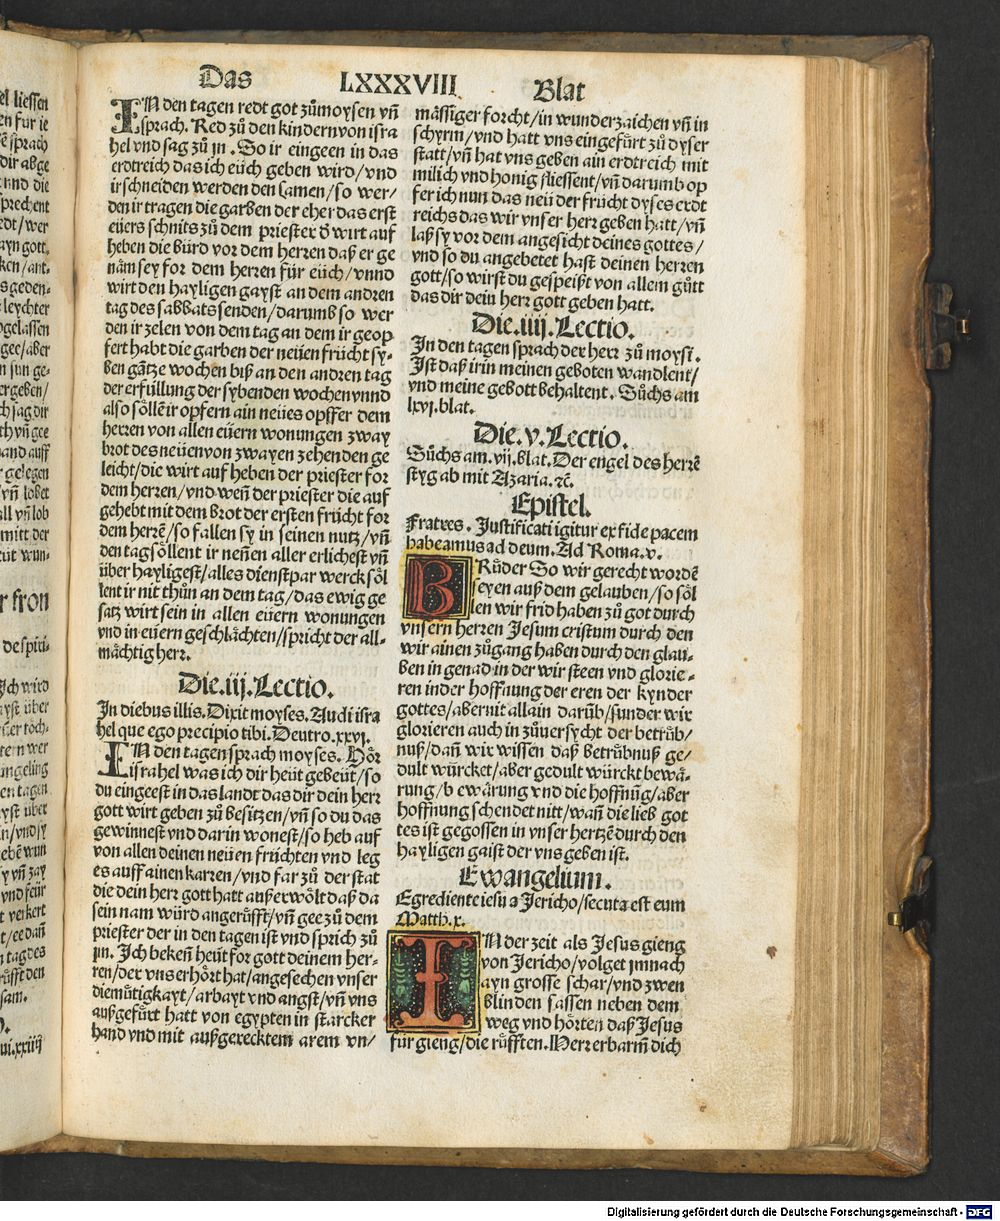 Das LXXXVIII Blat
IN den tagen redt got zů moysen vñ
sprach. Red zů den kindern von isra
hel vnd sag zů jn. So ir eingeen in das
erdtreich das ich eüch geben wird/vnd
ir schneiden werden den samen/so wer/
den ir tragen die garben der eher das erst
eüers schnits zů dem priester d̃ wirt auf
heben die bürd vor dem herren daß er ge
näm sey for dem herren für eüch/vnnd
wirt den hayligen gayst an dem andren
tag des sabbats senden/darumb so wer
den ir zelen von dem tag an dem ir geop
fert habt die garben der neüen frücht sy-
ben gãtze wochen biß an den andren tag
der erfüllung der sybenden wochen vnnd
also söllẽ ir opfern ain neües opffer dem
herren von allen eüern wonungen zway
brot des neüen von zwayen zehenden ge
leicht/die wirt auf heben der priester for
dem herren/vnd weñ der priester die auf
gehebt mit dem brot der ersten frücht for
dem herrẽ/so fallen sy in seinen nutz/vñ
den tag söllent ir neñen aller erlichest vñ
über hayligest/alles dienstpar werck söl
lent ir nit thůn an dem tag/das ewig ge
satz wirt sein in allen eüern wonungen
vnd in eüern geschlächten/spricht der all-
mächtig herr.
Die.iij.Lectio.
In diebus illis. Dixit moyses. Audi isra
hel que ego precipio tibi. Deutro.xxvj.
IN den tagen sprach moyses. Hör
israhel was ich dir heüt gebeüt/so
du eingeest in das landt das dir dein herr
gott wirt geben zů besitzen/vñ so du das
gewinnest vnd darin wonest/so heb auf
von allen deinen neüen früchten vnd leg
es auff ainen karren/vnd far zů der stat
die dein herr gott hatt außerwölt daß da
sein nam würd angerüfft/vñ gee zů dem
priester der in den tagen ist vnd sprich zů
jm. Ich bekeñ heüt for gott deinem her-
ren/der vns erhört hat/angesechen vnser
diemütigkayt/arbayt vnd angst/vñ vns
außgefürt hatt von egypten in starcker
hand vnd mit außgerecktem arem vn/
mässiger forcht/in wunderzaichen vñ in
schyrm/vnd hatt vns eingefürt zů dyser
statt/vñ hat vns geben ain erdtreich mit
milich vnd honig fliessent/vñ darumb op
fer ich nun das neü der frücht dyses erdt
reichs das wir vnser herr geben hatt/vñ
laß sy vor dem angesicht deines gottes/
vnd so du angebetet hast deinen herren
gott/so wirst du gespeißt von allem gůtt
das dir dein herr gott geben hatt.
Die.iiij.Lectio.
In den tagen sprach der herr zů moysi.
Ist daß ir in meinen geboten wandlent/
vnd meine gebott behaltent. Sůchs am
lxvj.blat.
Die.v.Lectio.
Sůchs am.vij.blat. Der engel des herrẽ
styg ab mit Azaria.ꝛc̃.
Epistel.
Fratres. Justificati igitur ex fide pacem
habeamus ad deum. Ad Roma.v.
BRüder So wir gerecht wordẽ
seyen auß dem gelauben/so söl
len wir frid haben zů got durch
vnsern herren Jesum cristum durch den
wir ainen zůgang haben durch den glau-
ben in genad in der wir steen vnd glorie-
ren in der hoffnung der eren der kynder
gottes/aber nit allain darüb/sunder wir
glorieren auch in zůuersycht der betrüb/
nuß/dañ wir wissen daß betrübnuß ge/
dult würcket/aber gedult würckt bewä-
rung/bewärung vnd die hoffnũg/aber
hoffnung schendet nitt/wañ die lieb got
tes ist gegossen in vnser hertzẽ durch den
hayligen gaist der vns geben ist.
Ewangelium.
Egrediente iesu a Jericho/secuta est eum
Matth.x.
IN der zeit als Jesus gieng
von Jericho/volget jm nach
ayn grosse schar/vnd zwen
blinden sassen neben dem
weg vnd hörten daß Jesus
für gieng/die rüfften. Herr erbarm dich
Digitalisierung gefördert durch die Deutsche Forschungsgemeinschaft - DFG